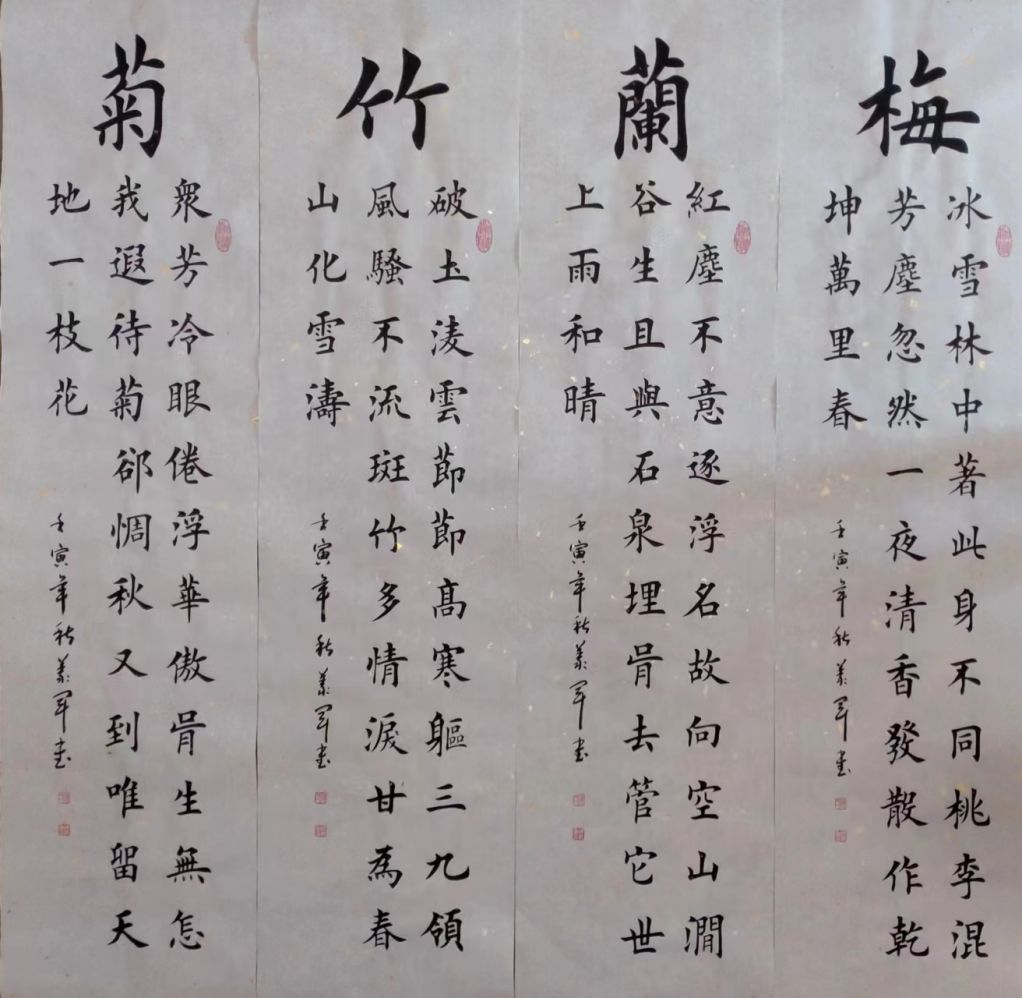 梅
冰雪林中著此身不同桃李混
芳塵忽然一夜清香發散作乾
坤萬里春
壬寅年秋軍書
蘭
紅塵不意逐浮名故向空山澗
谷生且與石泉埋骨去管它世
上雨和晴
壬寅年秋軍書
竹
破圡淩雲節節髙寒軀三九領
風騷不流斑竹多情淚甘為春
山化雪濤
壬寅年秋軍書
菊
衆芳冷眼倦浮華傲骨生無怎
我遐待菊郤惆秋又到唯留天
地一枝花
壬寅年秋軍書